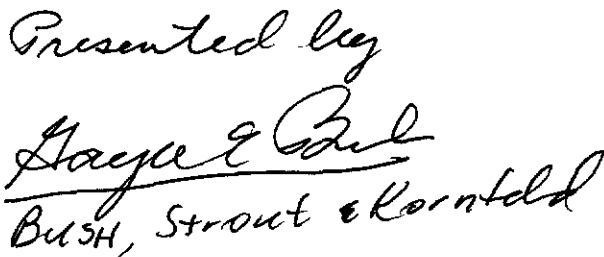 Presented by
Gayle E Bush
BUSH, Strout & Kornfeld